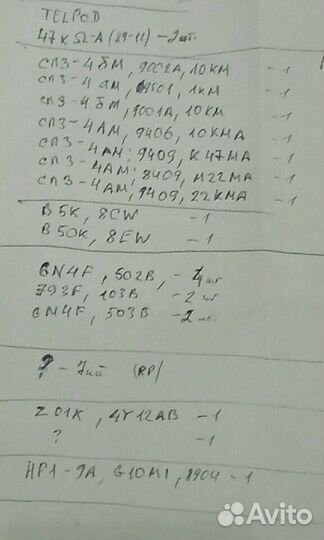 TELPOD
47 K Ω-A (89-12) - 2 шт.
СПЗ-4 бМ, 9002A, 10 КМ - 1
СПЗ-4 аМ, 1 КМ - 1
СПЗ-4 бМ, 9001A, 10 КМ - 1
СПЗ-4АМ, 9406, 10 КМА - 1
СПЗ-4АМ, 9409, К 47 МА - 1
СПЗ-4АМ, 8409, М22МА - 1
СПЗ-4АМ, 9409, 22 КМА - 1
B 5K, 8CW - 1
B 50K, 8EW - 1
GN4F, 502B, - 4 шт
793F, 103B - 2 шт
GN4F, 503B - 2 шт.
? - 7 шт (RP)
Z 01K, 4Y12AB - 1
? - 1
HP1-9A, G10M1, 8904 - 1
Avito